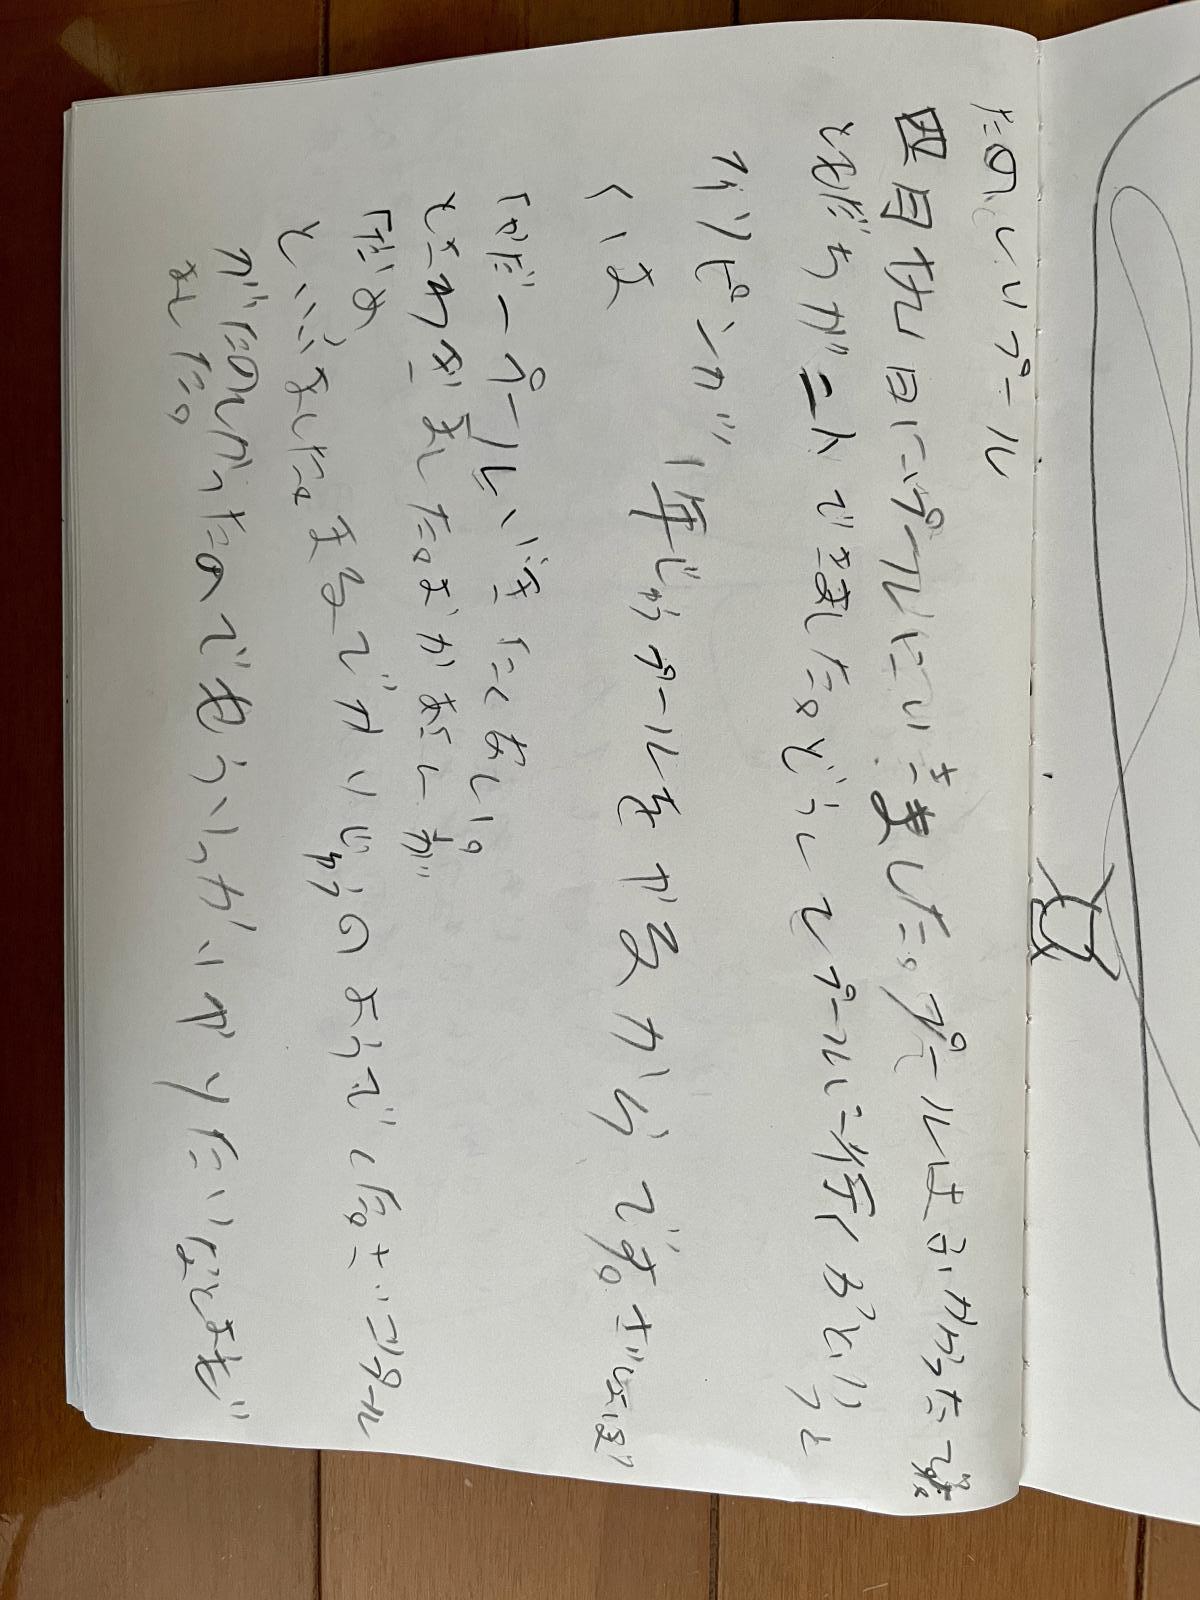 たのしいプール
四月九日にプールにいきました。プールはひろかったです。
ともだちが二人できました。どうしてプールに行くかというと
フィリピンが1年じゅうプールをやるからです。まず、ぼ
くは
「まだープールいきたくない。
とさわぎました。おかあさんが
「だめ
といいました。まるでかいじゅうのようでした。でも、プール
がたのしかったのでもういっかいやりたいなとおもい
ました。